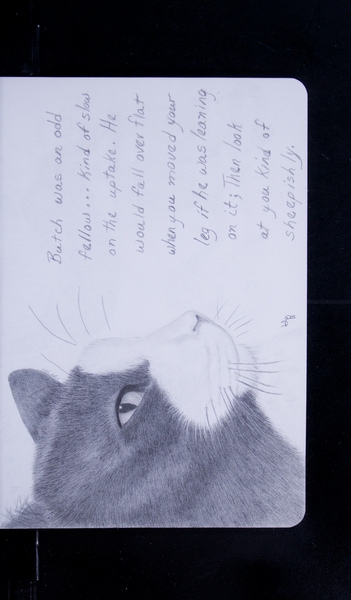 Butch was an odd
fellow... Kind of slow
on the uptake. He
would fall over flat
when you moved your
leg if he was leaning
on it; Then look
at you kind of
sheepishly.